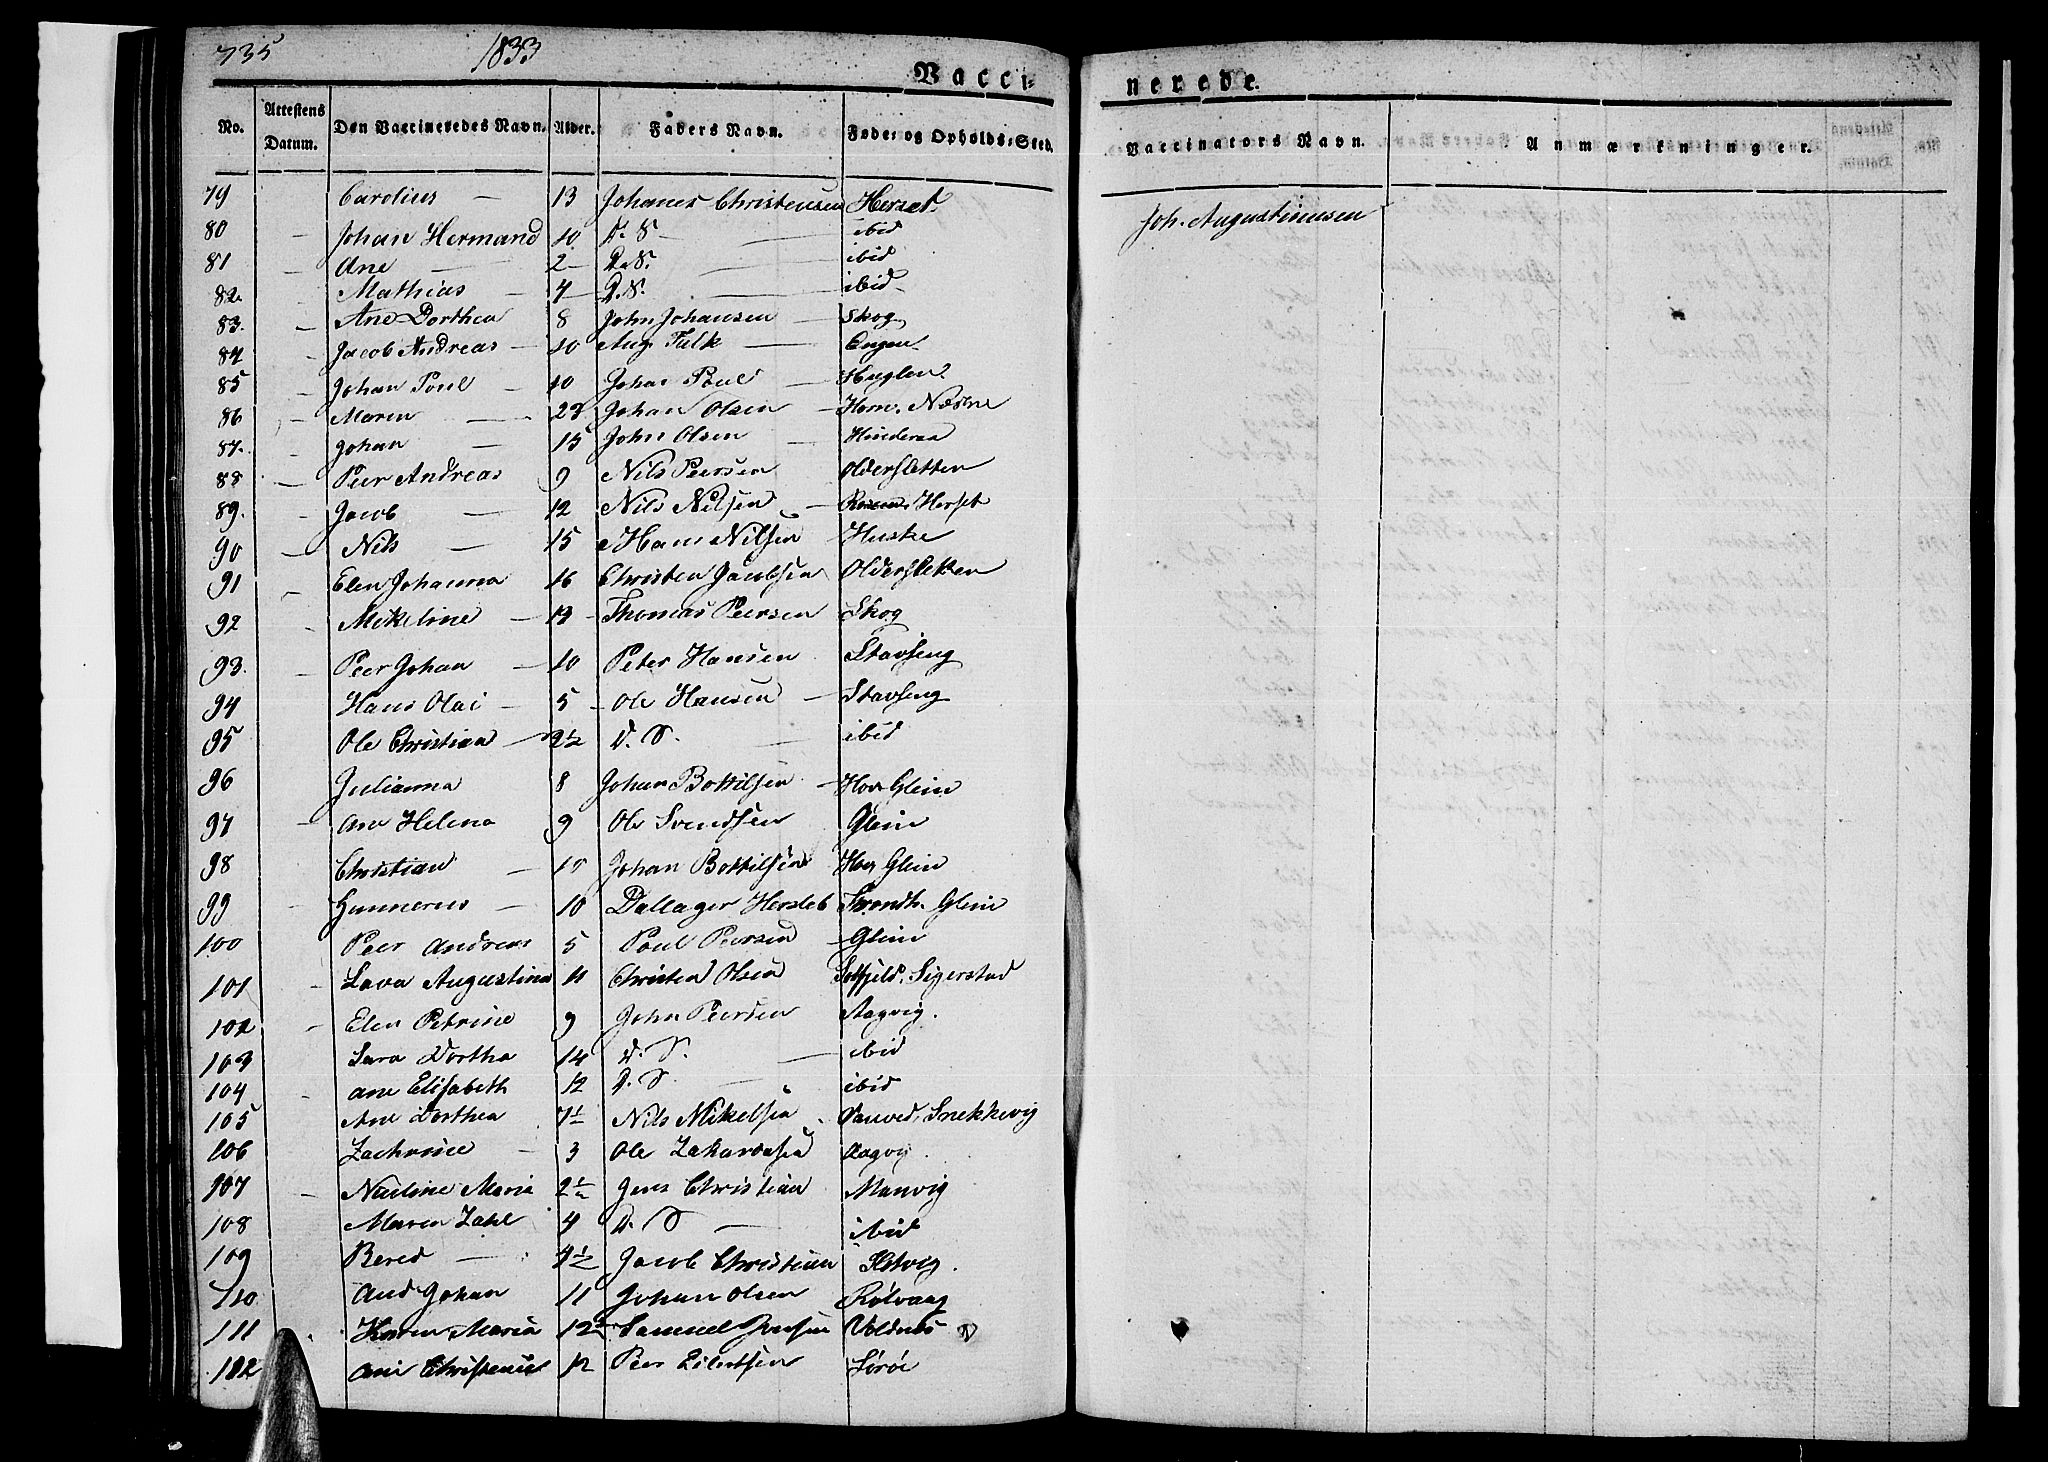 735 1833
Vacci- nerede.
No. Attestens Datum. Den Vaccineredes Navn. Alder. Faders Navn. Føde- og Opholds-Sted. Vaccinators Navn. Anmærkninger.
79 Carolius — 13 Johanes Christensen Herset. Joh. Augustinusen
80 — Johan Hermand 10 D. S — ibid
81 — Ane — 2 — D. S. — ibid
82. — Mathias — 4 — D. S. — ibid
83. — Ane Dorthea 8 John Johansen — Skog
84 — Jacob Andreas — 10 Aug. Falk — Engen
85 — Johan Poul — 10 Johan Poul — Huglen
86 — Maren — 23 Johan Olsen — Hern. Næsne
87. — Johan — 15 John Olsen — Hinderaa
88 — Peer Andreas 9 Nils Peersen Oldersletten
89. — Jacob — 12 Nils Nilsen — Herset
90 — Nils — 15 Hans Nilsen — Huske
91 — Elen Johanna 16 Christen Jacobsen Oldersletten
92 — Mikeline — 13 — Thomas Peersen Skog
93. — Peer Johan — 10 Peter Hansen — Stavseng
94 Hans Olai — 5 — Ole Hansen — Stavseng
95 Ole Christian — 2½ D. S. — ibid
96 Julianna 8 Johan Bottilsen — Hov Glein
97 — Ane Helena 9 Ole Svendsen Glein
98 Christian — 10 Johan Bottilsen Hov Glein
99 — Gunnerus — 10 Dallager Hersleb Trondh. Glein
100 Peer Andreas 5 Poul Peersen — Glein
101 — Lava Augustina 11 Christen Olsen Sigerstad
102 — Elen Petrine 9 John Peersen Aagvig.
103 Sara Dorthea 14 D. S. — ibid
104 — Ane Elisabeth 12 D. S. — ibid
105 Ane Dorthea 7½ Nils Mikelsen Snekkevig
106 Zachrine — 3 Ole Zakariasen Aagvig.
107 — Nicoline Maria 2½ Jens Christian Manvig
108 Maren Zahl 4 D. S — ibid
109 Bered — 4½ Jacob Christian
110 And Johan 11 Johan Olsen Rølvaag
111 Karen Maria 12 Samuel Jensen Voldnes
112 Ane 12 Peer Eilertsen Sørøe